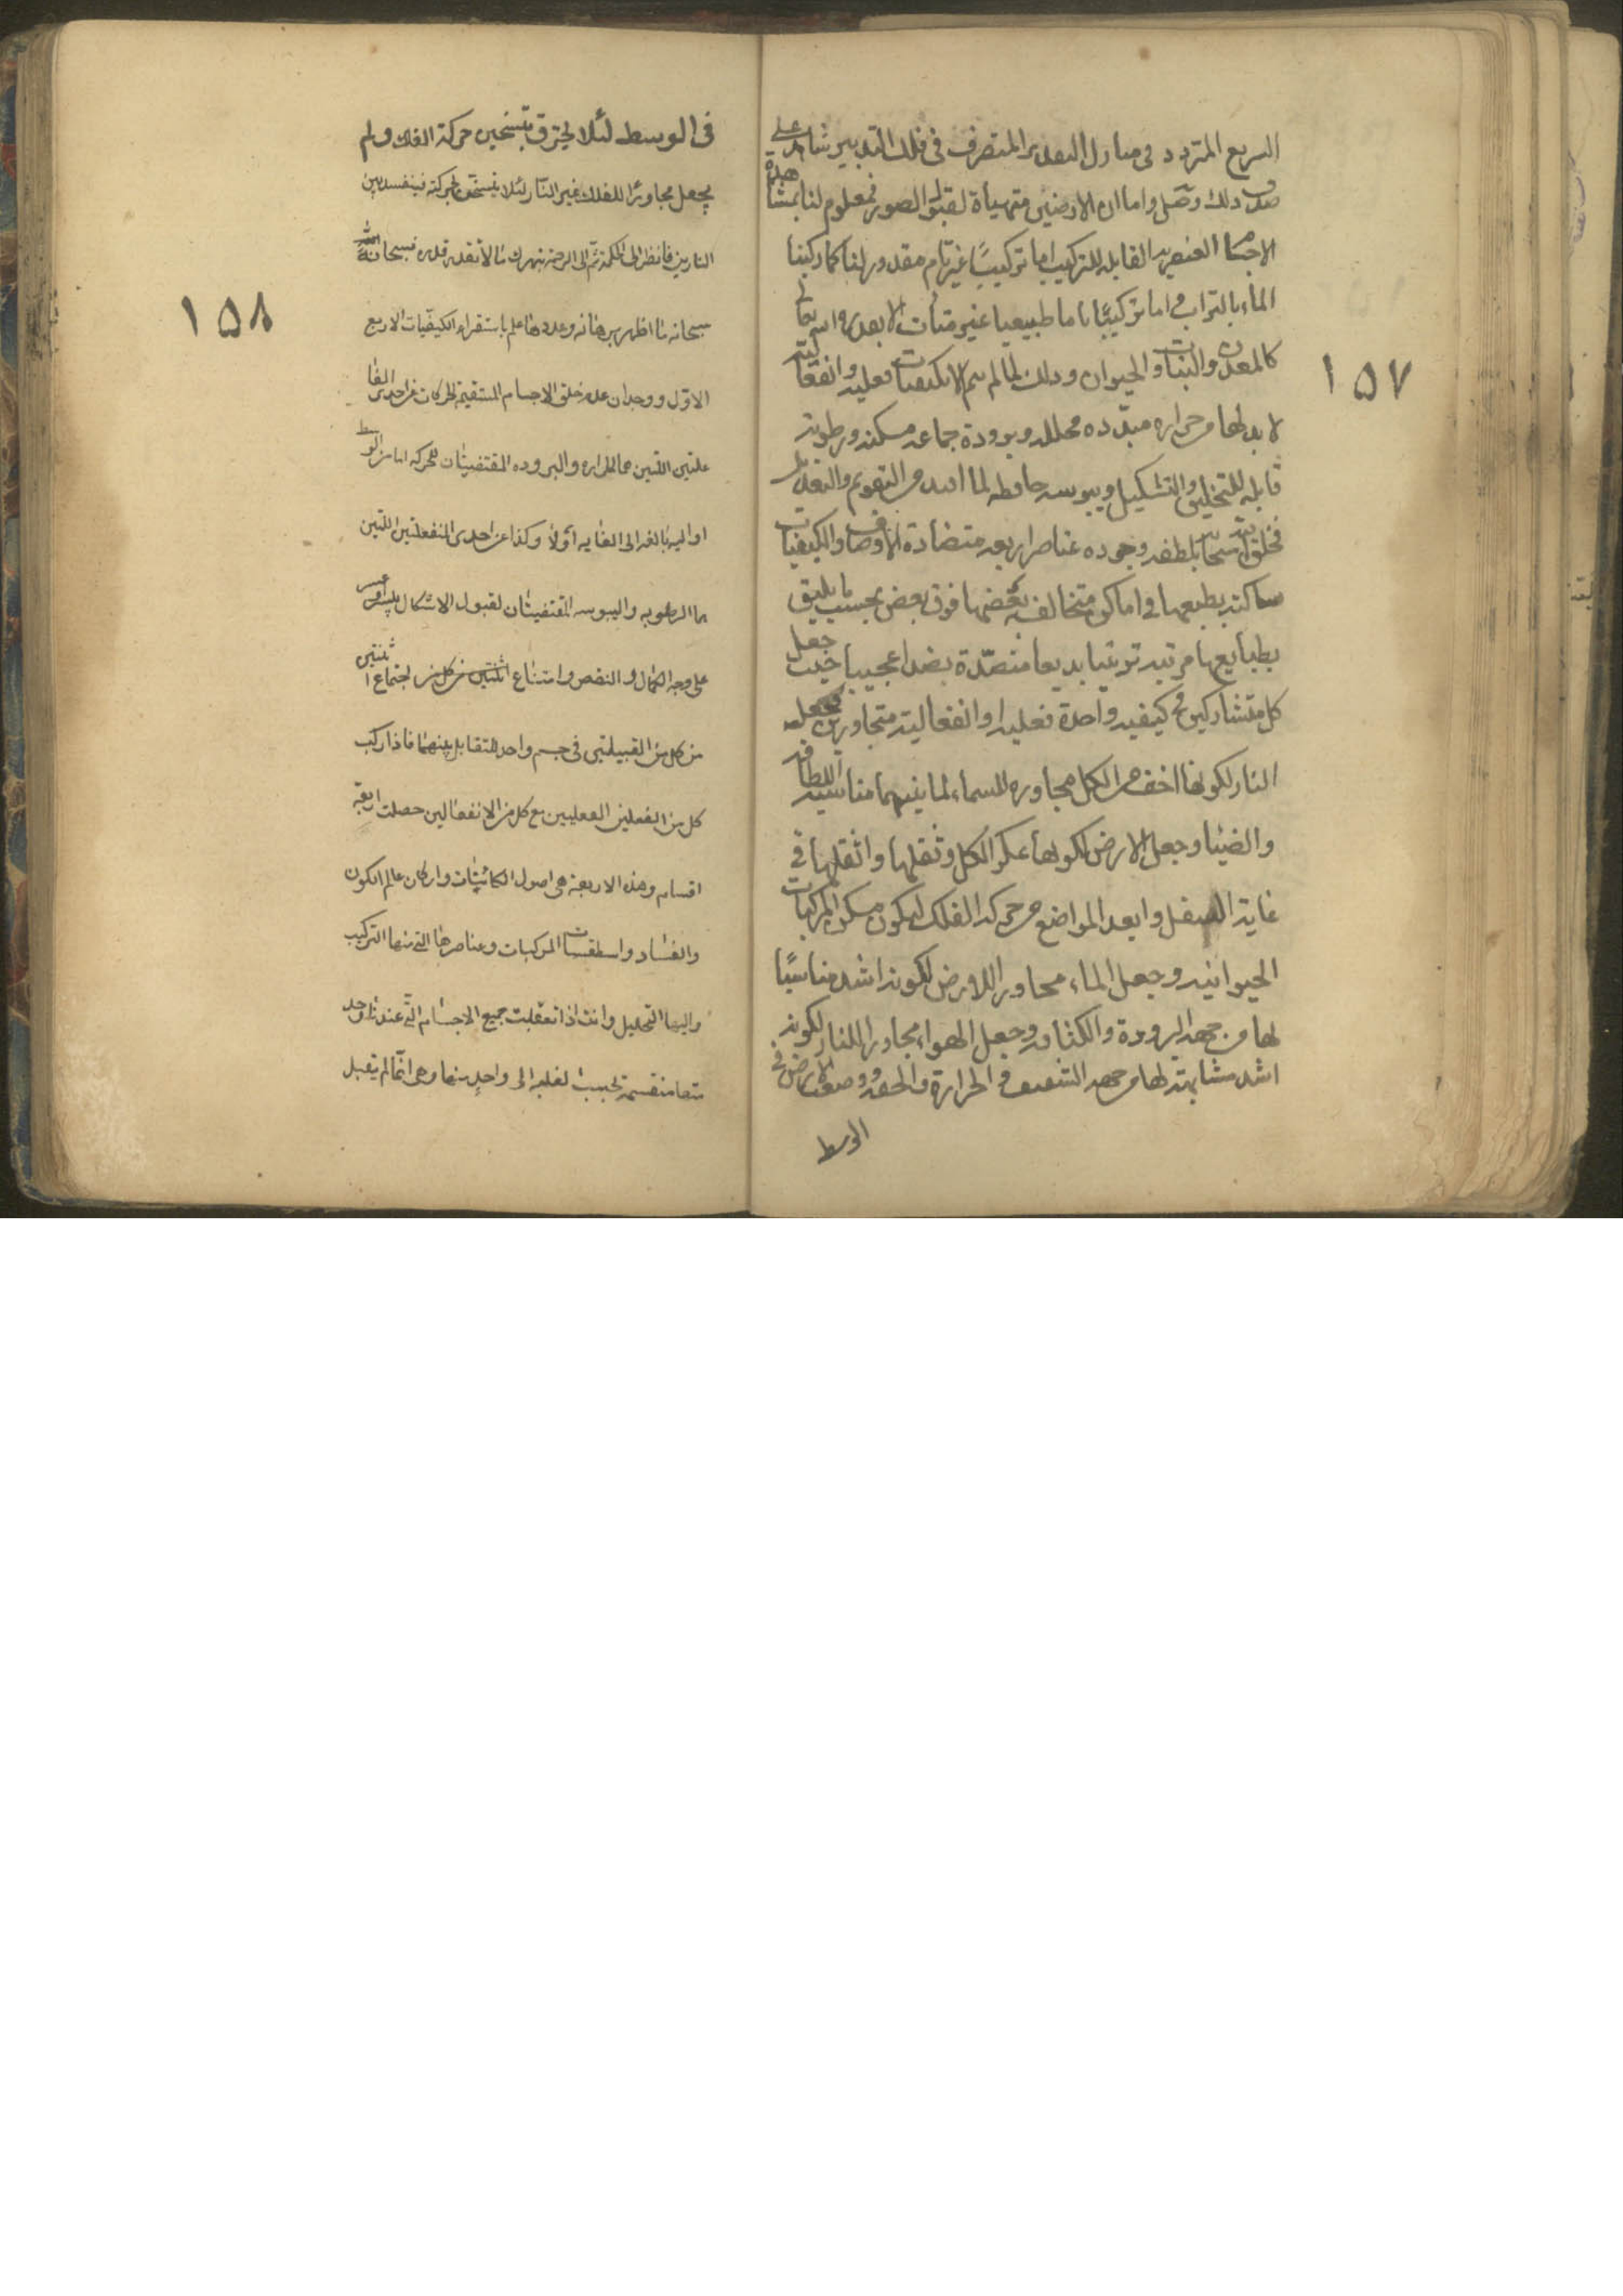 السريع المتردد فى منازل التقدير المتصرف فى فلك التدبير شاهد على
صدق ذلك وصل واما ان الارضين متهيأة لقبول الصور فمعلوم لنا بمشاهدة
الاجسام العنصريه القابله للتركيب اما تركيبًا غير تام مقدور لنا كما ركبنا
الماء بالتراب واما تركيبًا تاما طبيعيا غير متأت الا بقدرة الله تعالى
كالمعدن والنبات والحيوان وذلك لما لم يتم الا بكيفيات فعلية وانفعالية
لا بد لها من حراره مبدده محلله وبرودة جماعه مسكنه ورطوبة
قابله للتخليق والتشكيل ويبوسه حافظه لما افيد من التقويم والتعديل
فخلق الله سبحانه بلطفه وجوده عناصر اربعه متضادة الاوصاف والكيفيات
ساكنة بطبعها فى اماكن متخالفه بعضها فوق بعض بحسب ما يليق
بطبايعها مرتبه ترتيبا بديعا منضّدة نضدا عجيبا حيث جعل
كل متشاركين فى كيفيه واحدة فعليه او انفعالية متجاورين فجعل
النار لكونها اخف من الكل مجاوره للسماء لما بينهما مناسبة اللطافة
والضياء وجعل الارض لكونها عكر الكل وثقلها واثقلها فى
غاية السفل وابعد المواضع من حركه الفلك ليكون مسكن المركبات
الحيوانيه وجعل الماء مجاورا للارض لكونه اشد مناسبًا
لها من جهة البرودة والكثافه وجعل الهواء مجاورا للنار لكونه
اشد مشابهة لها من جهة الشفيف والحرارة والخفه ووضعت الارض فى
الوسط
١٥٧
فى الوسط لئلا يحترق بتسخين حركة الفلك ولم
يجعل مجاورًا للفلك غير النار لئلا يتسخن بحركته فينفسد بين
النارين فانظر الى الحكمة ثم الى الرحمة تبهرك مما لا تقدر قدره فسبحانه
سبحانه ما اظهر برهانه وعددها علم باستقراء الكيفيات الاربع
الاول ووجدان عدم خلق الاجسام المستقيمة الحركات عن احدى الفا
علتين اللتين هما الحراره والبروده المقتضيتان للحركه اما من الوسط
او اليه بالغه الى الغايه او لا وكذا عن احدى المنفعلتين اللتين
هما الرطوبه واليبوسه المقتضيتان لقبول الاشكال بيسر او عسر
على وجه الكمال والنقص وامتناع اجتماع اثنتين
من كل من القبيلتين فى جسم واحد للتقابل بينهما فاذا ركب
كل من الفعلين الفعليين مع كل من الانفعالين حصلت اربعة
اقسام وهذه الاربعة هى اصول الكائنات واركان عالم الكون
والفساد واسطقسات المركبات وعناصرها التى منها التركيب
واليها التحليل وانت اذا تعقلت جميع الاجسام التى عندنا وجد
تها منقسمة بحسب الغلبه الى واحد منها وهى انما لم يقبل
١٥٨